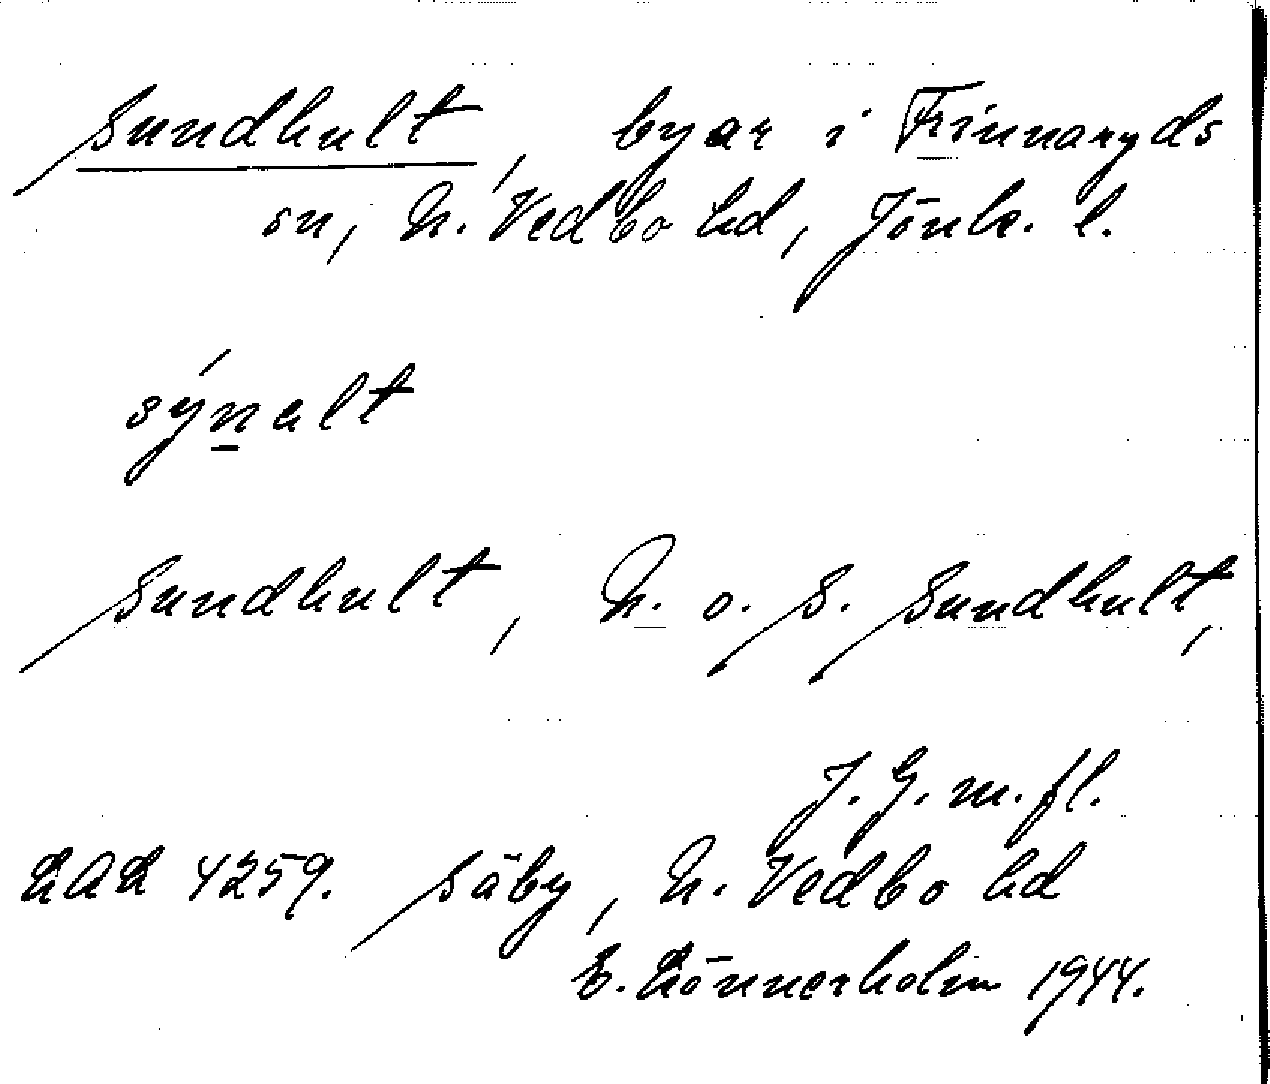 Sundhult, byar i Frinnaryds
sn, N. Vedbo hd, Jönk. l.
sýnalt
Sundhult, N. o. S. Sundhult,
J. G. m. fl.
LAL 4259. Säby, N. Vedbo hd
E. Lönnerholm 1944.